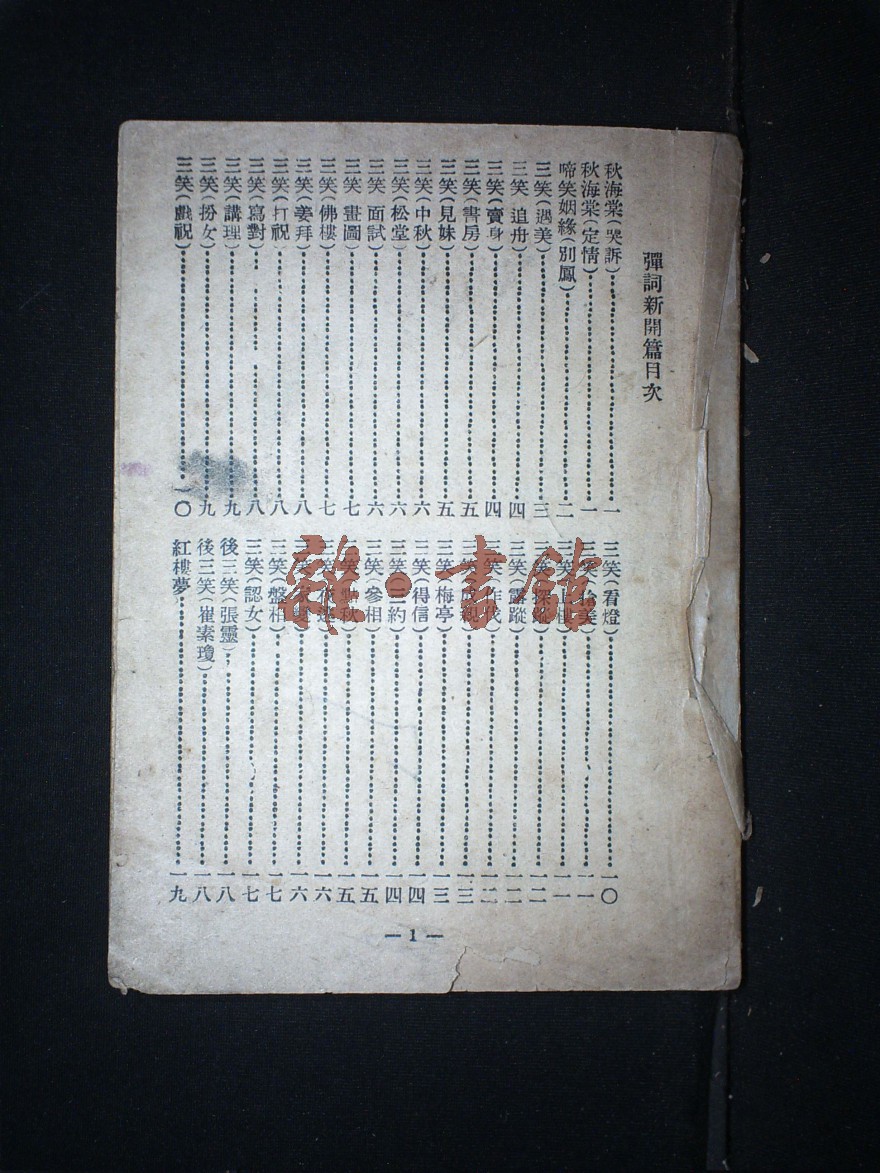 彈詞新開篇目次
秋海棠(哭訴)……一
秋海棠(定情)……一
啼笑姻緣(別鳳)……二
三笑(遇美)……三
三笑 追舟……四
三笑(賣身)……四
三笑(書房)……五
三笑(見妹)……五
三笑(中秋)……六
三笑(松堂)……六
三笑 面試……六
三笑 畫圖……七
三笑(佛樓)……七
三笑(姜拜……八
三笑(打祝……八
三笑(寫對)……八
三笑(講理)……九
三笑(扮女)……九
三笑(戲祝)……一〇
三笑(看燈)……一〇
三笑(美)……一一
三笑……一一
三笑(探蹤)……一二
三笑(露蹤)……一二
三笑(作伐)……一二
三笑(親)……一三
三笑(梅亭)……一三
三笑(得信)……一四
三笑(三約)……一四
三笑(參相)……一五
三笑(秋)……一五
三笑……一六
三笑……一六
三笑(盤相)……一七
三笑(認女)……一七
後三笑(張靈)……一八
後三笑(崔素瓊)……一八
紅樓夢……一九
— 1 —
雜·書館